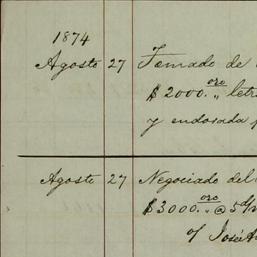 1874
Agosto 27 Tomado de
$2000.oro „ letr
y endosada p
Agosto 27 Negociado del
$3000.oro „ @ 5 d/
of José A